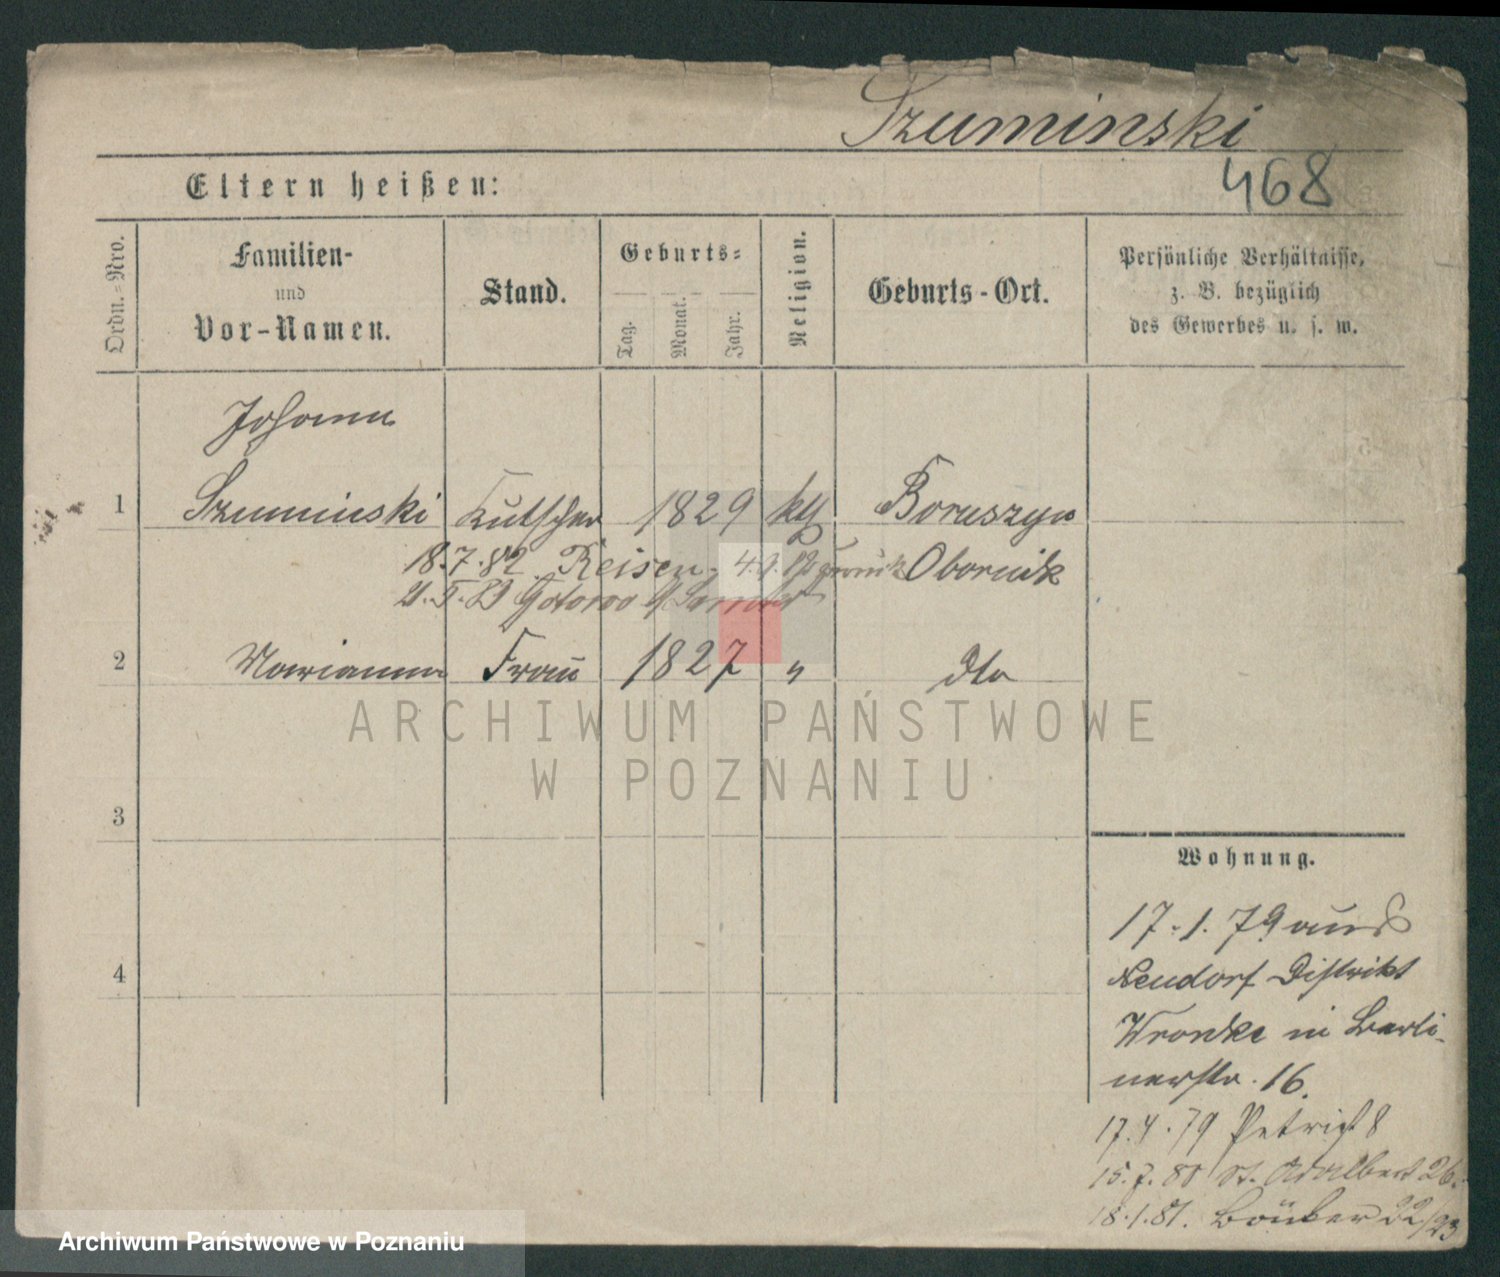 Szuminski
468
Eltern heißen:
Ordn.-Nro.
Familien-
und
Vor-Namen.
Stand.
Geburts-
Tag.
Monat.
Jahr.
Religion.
Geburts-Ort.
Persönliche Verhältnisse,
z. B. bezüglich
des Gewerbes u. s. w.
Johann
1 Szuminski Kutscher 1829 kth Boruszyn
18.7.82 Reisen Obornik
2 Marianna Frau 1827 " dto
ARCHIWUM PAŃSTWOWE
W POZNANIU
3
4
Wohnung.
17.1.79 aus
Neudorf Distrikt
Wronke in Berli-
nerstr. 16.
17.4.79 Petrist 8
15.7.80 St. Adalbert 26.
18.1.81. 22/23
Archiwum Państwowe w Poznaniu